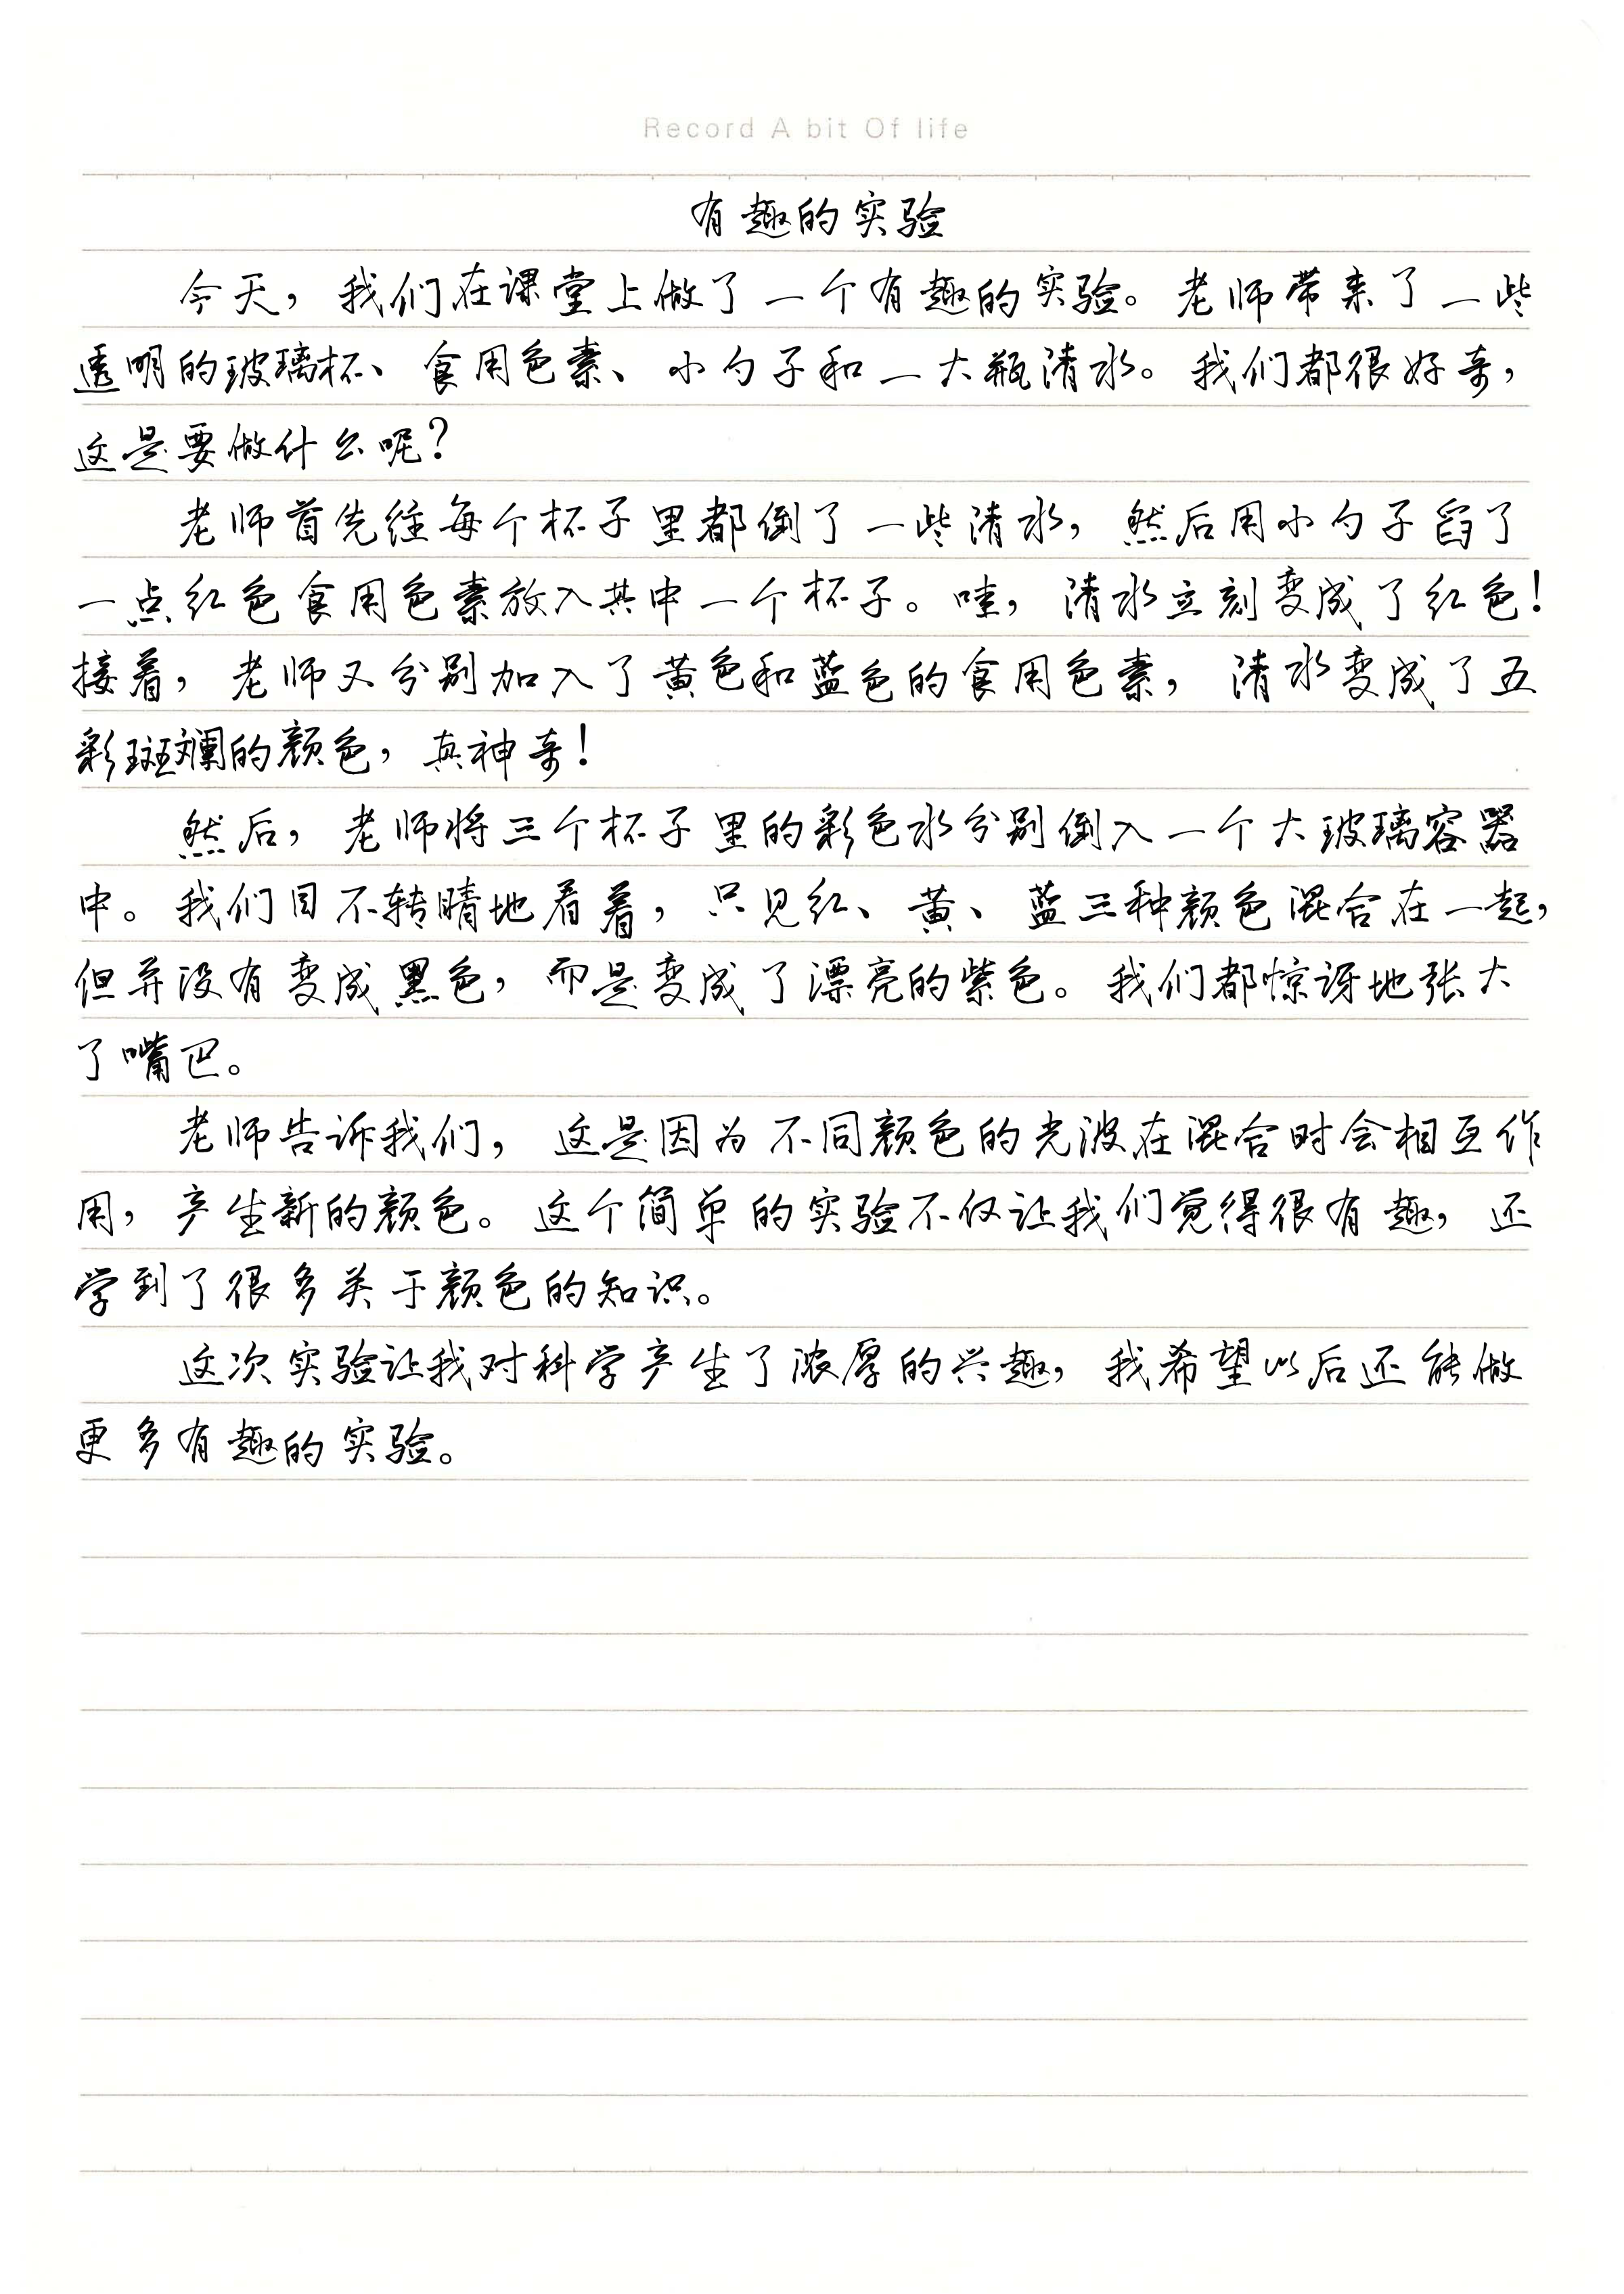 Record A bit Of life
有趣的实验
今天，我们在课堂上做了一个有趣的实验。老师带来了一些
透明的玻璃杯、食用色素、小勺子和一大瓶清水。我们都很好奇，
这是要做什么呢？
老师首先往每个杯子里都倒了一些清水，然后用小勺子舀了
一点红色食用色素放入其中一个杯子。哇，清水立刻变成了红色！
接着，老师又分别加入了黄色和蓝色的食用色素，清水变成了五
彩斑斓的颜色，真神奇！
然后，老师将三个杯子里的彩色水分别倒入一个大玻璃容器
中。我们目不转睛地看着，只见红、黄、蓝三种颜色混合在一起，
但并没有变成黑色，而是变成了漂亮的紫色。我们都惊讶地张大
了嘴巴。
老师告诉我们，这是因为不同颜色的光波在混合时会相互作
用，产生新的颜色。这个简单的实验不仅让我们觉得很有趣，还
学到了很多关于颜色的知识。
这次实验让我对科学产生了浓厚的兴趣，我希望以后还能做
更多有趣的实验。